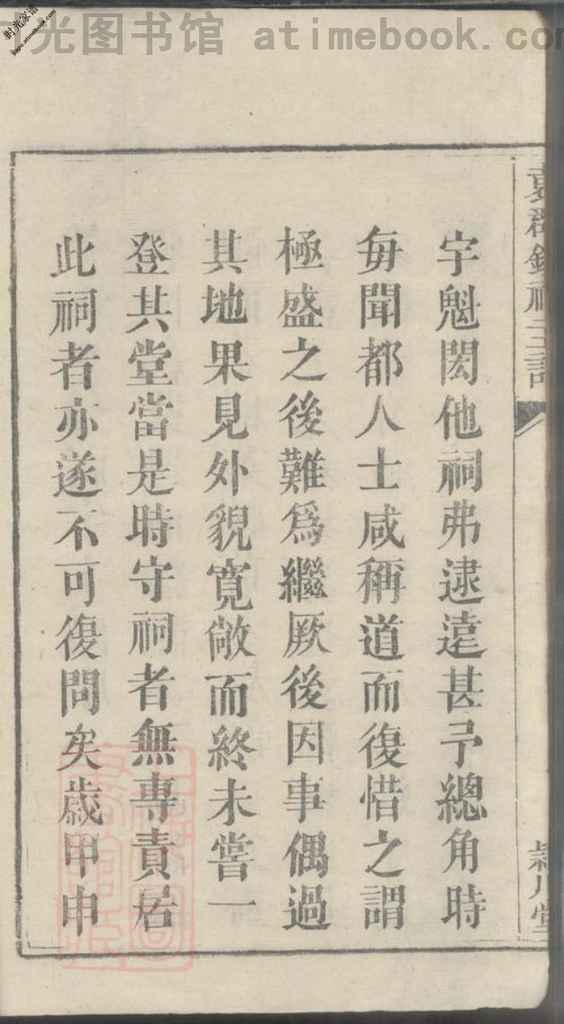 时光图书馆 atimebook.com
宇魁閎他祠弗逮遠甚予總角時
每聞都人士咸稱道而復惜之謂
極盛之後難爲繼厥後因事偶過
其地果見外貌寬敞而終未嘗一
登其堂當是時守祠者無專責居
此祠者亦遂不可復問矣歲甲申